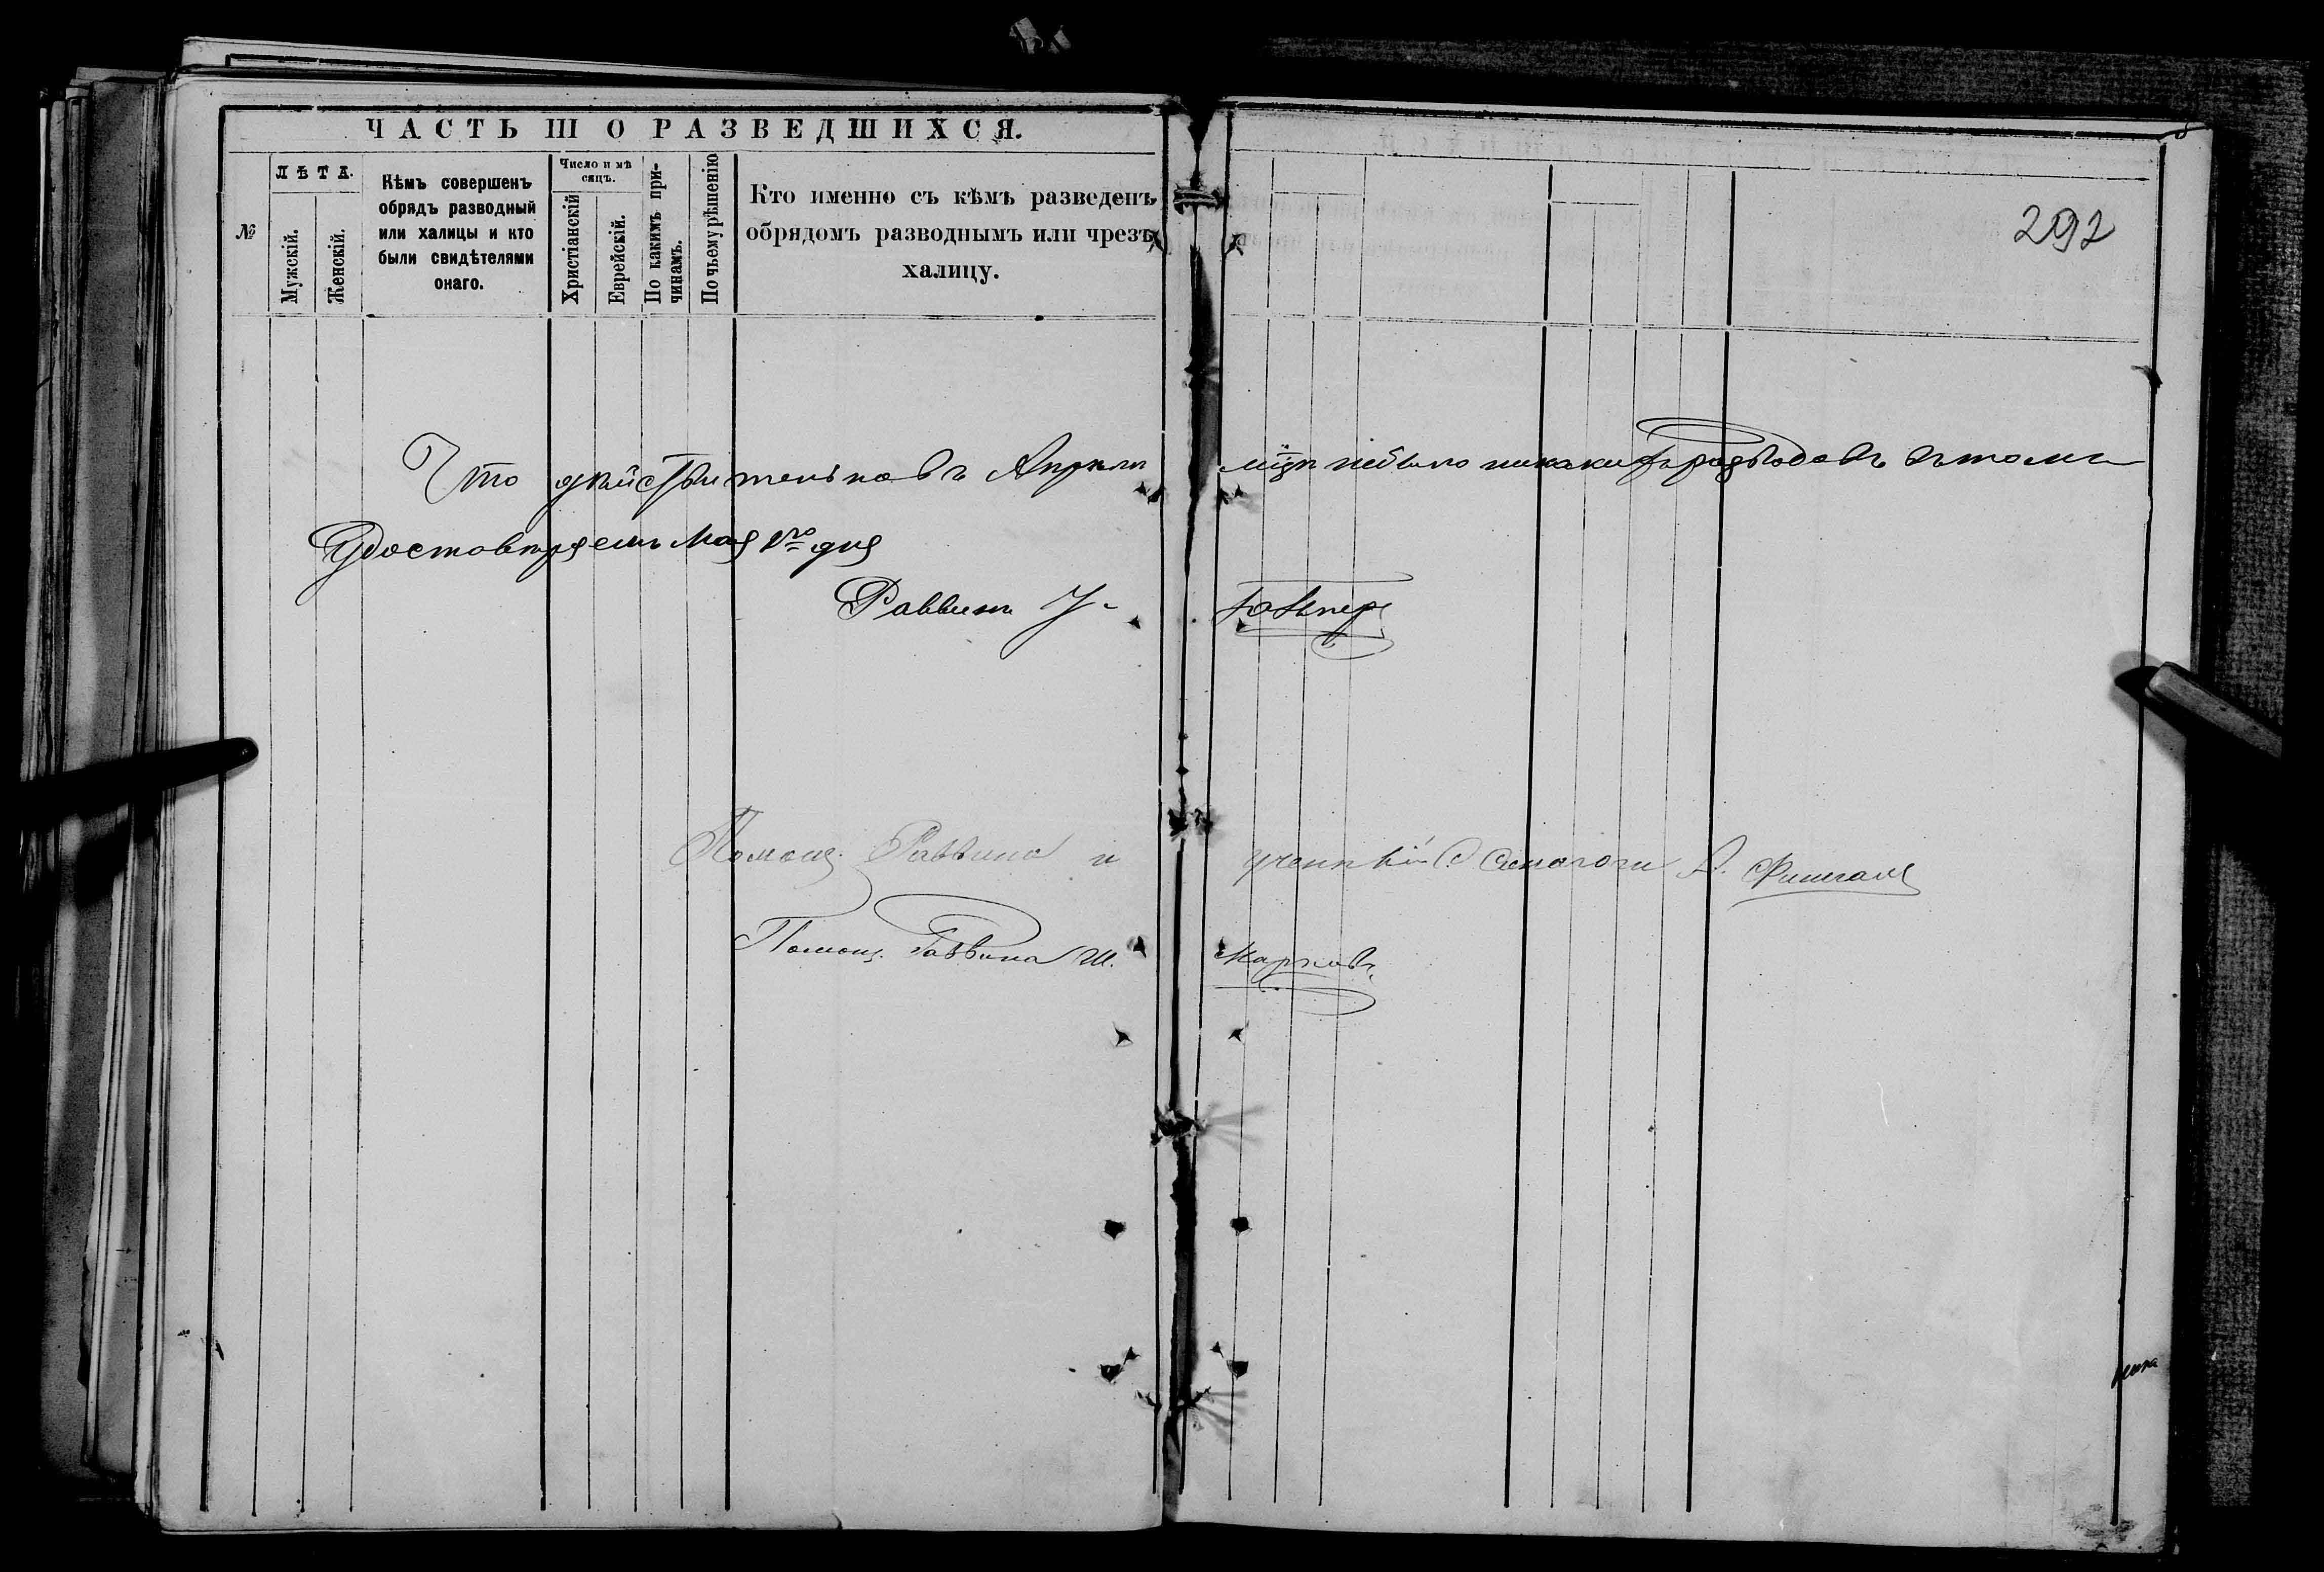 ЧАСТЬ III О РАЗВЕДШИХСЯ.
№
ЛѢТА.
Мужскій.
Женскій.
Кѣмъ совершенъ
обрядъ разводный
или халицы и кто
были свидѣтелями
онаго.
Число и мѣ
сяцъ.
Христіанскій
Еврейскій.
По какимъ при-
чинамъ.
По чьему рѣшенію
Кто именно съ кѣмъ разведенъ
обрядомъ разводнымъ или чрезъ
халицу.
292
Что дѣйствительно въ Апрѣлѣ мцѣ небыло никакихъ разводовъ въ томъ
Удостовѣряемъ Мая 1го дня
Раввинъ
Помощ. Раввина и ученый С. Синагоги А.
Помощ. Раввина Ш. Марковъ